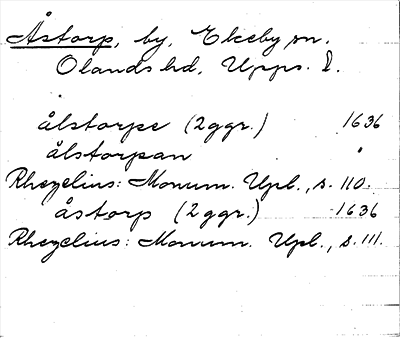 Åstorp, by, Ekeby sn.
Olands hd, Upps. l.
ålstorpe (2 ggr.) 1636
ålstorpan "
Rhezelius: Monum. Upl., s. 110.
åstorp (2 ggr.) 1636
Rhezelius: Monum. Upl., s. 111.